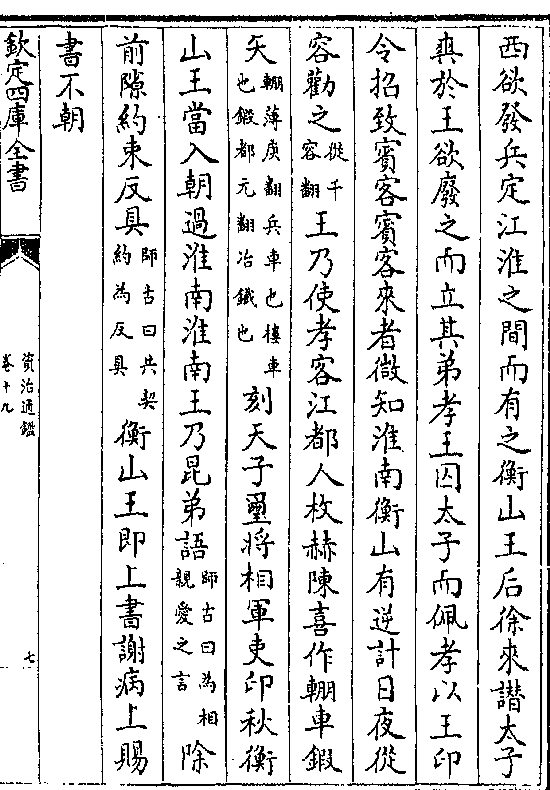 西欲發兵定江淮之間而有之衡山王后徐來譖太子
爽於王欲廢之而立其弟孝王囚太子而佩孝以王印
令招致賓客賓客來者微知淮南衡山有逆計日夜從
容勸之從千容翻王乃使孝客江都人枚赫陳喜作輣車鍛
矢輣薄庚翻兵車也樓車也鍛都元翻冶鐵也刻天子璽將相軍吏印秋衡
山王當入朝過淮南淮南王乃昆弟語師古曰為相親愛之言除
前隙約束反具師古曰共契約為反具衡山王即上書謝病上賜
書不朝
欽定四庫全書
資治通鑑
卷十九
七